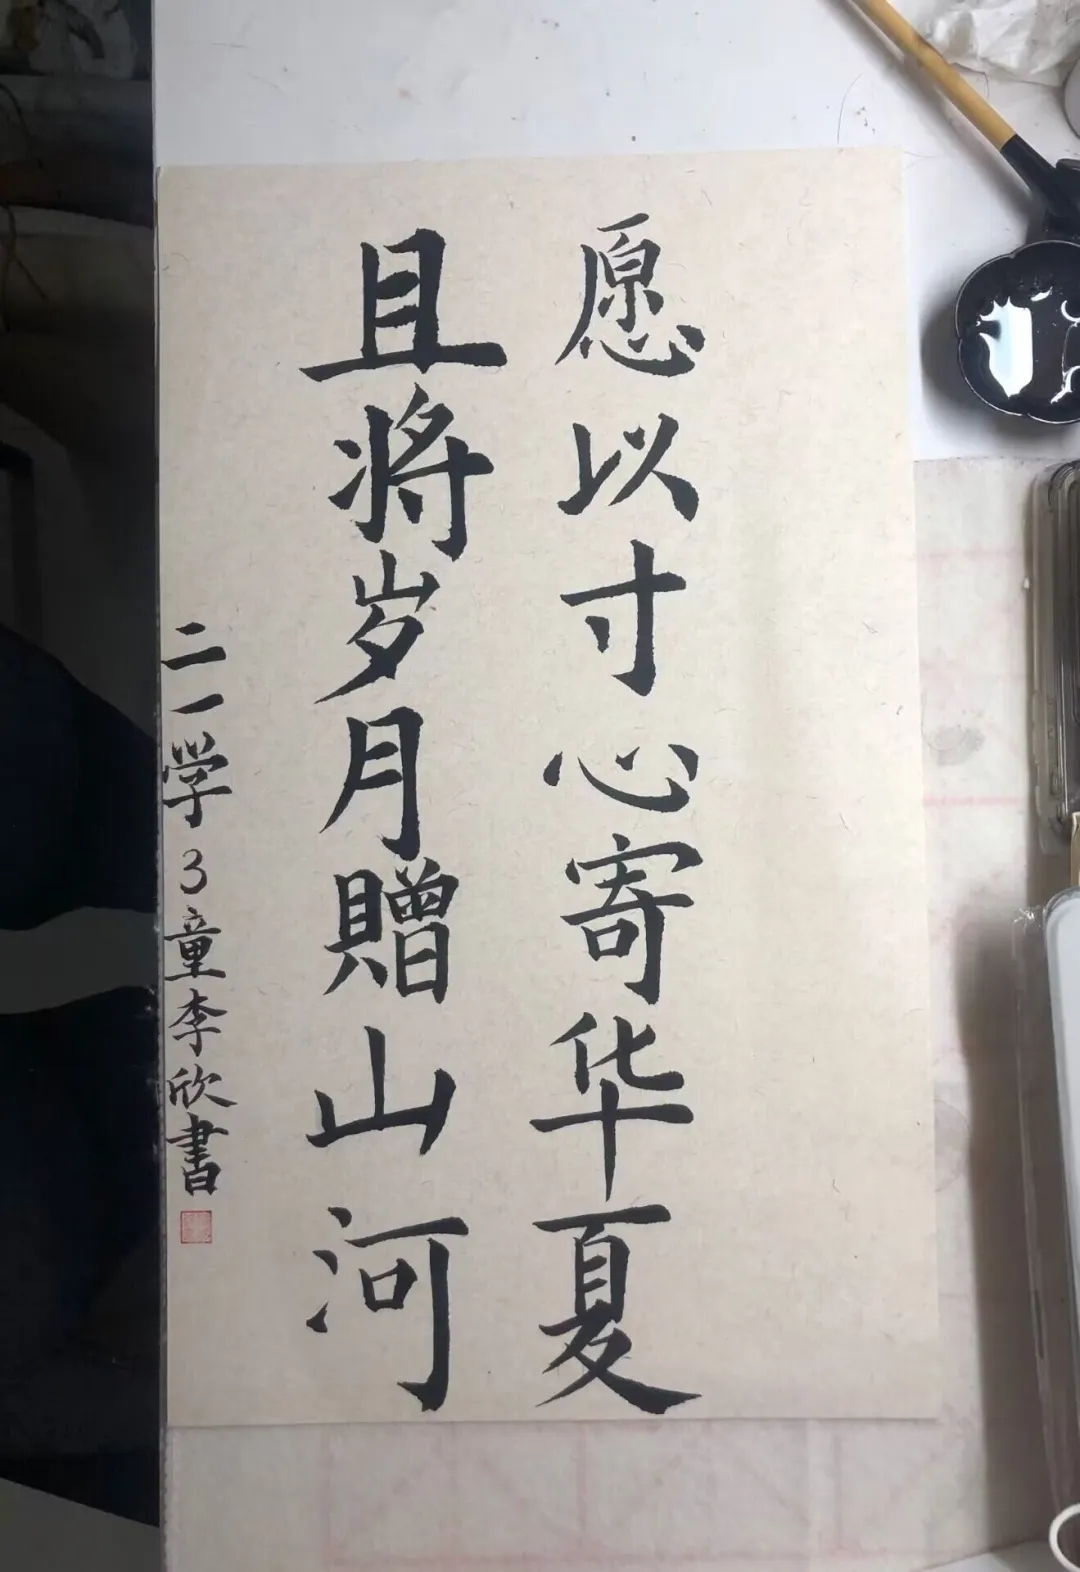 愿以寸心寄华夏
且将岁月赠山河
二一学3童李欣書